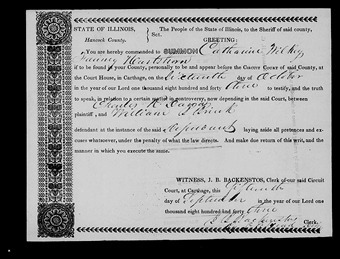 STATE OF ILLINOIS, The People of the State of Illinois, to the Sheriff of said county,
Hancock County. Sct. GREETING:
You are hereby commended to SUMMON Catharine Wilkey
Hartshorn
if to be found in your County, personally to be and appear before the CIRCUIT COURT of said County, at
the Court House, in Carthage, on the Sixteenth day of October
in the year of our Lord one thousand eight hundred and forty three to testify, and the truth
to speak, in relation to a certain matter in controversy, now depending in the said Court, between
Charles
plaintiff, and William
defendant at the instance of the said laying aside all pretences and ex-
cuses whatsoever, under the penalty of what the law directs. And make due return of this writ, and the
manner in which you execute the same.
WITNESS, J. B. BACKENSTOS, Clerk of our said Circuit
Court, at Carthage, this
day of September in the year of our Lord one
thousand eight hundred and forty three
J B Backenstos Clerk.